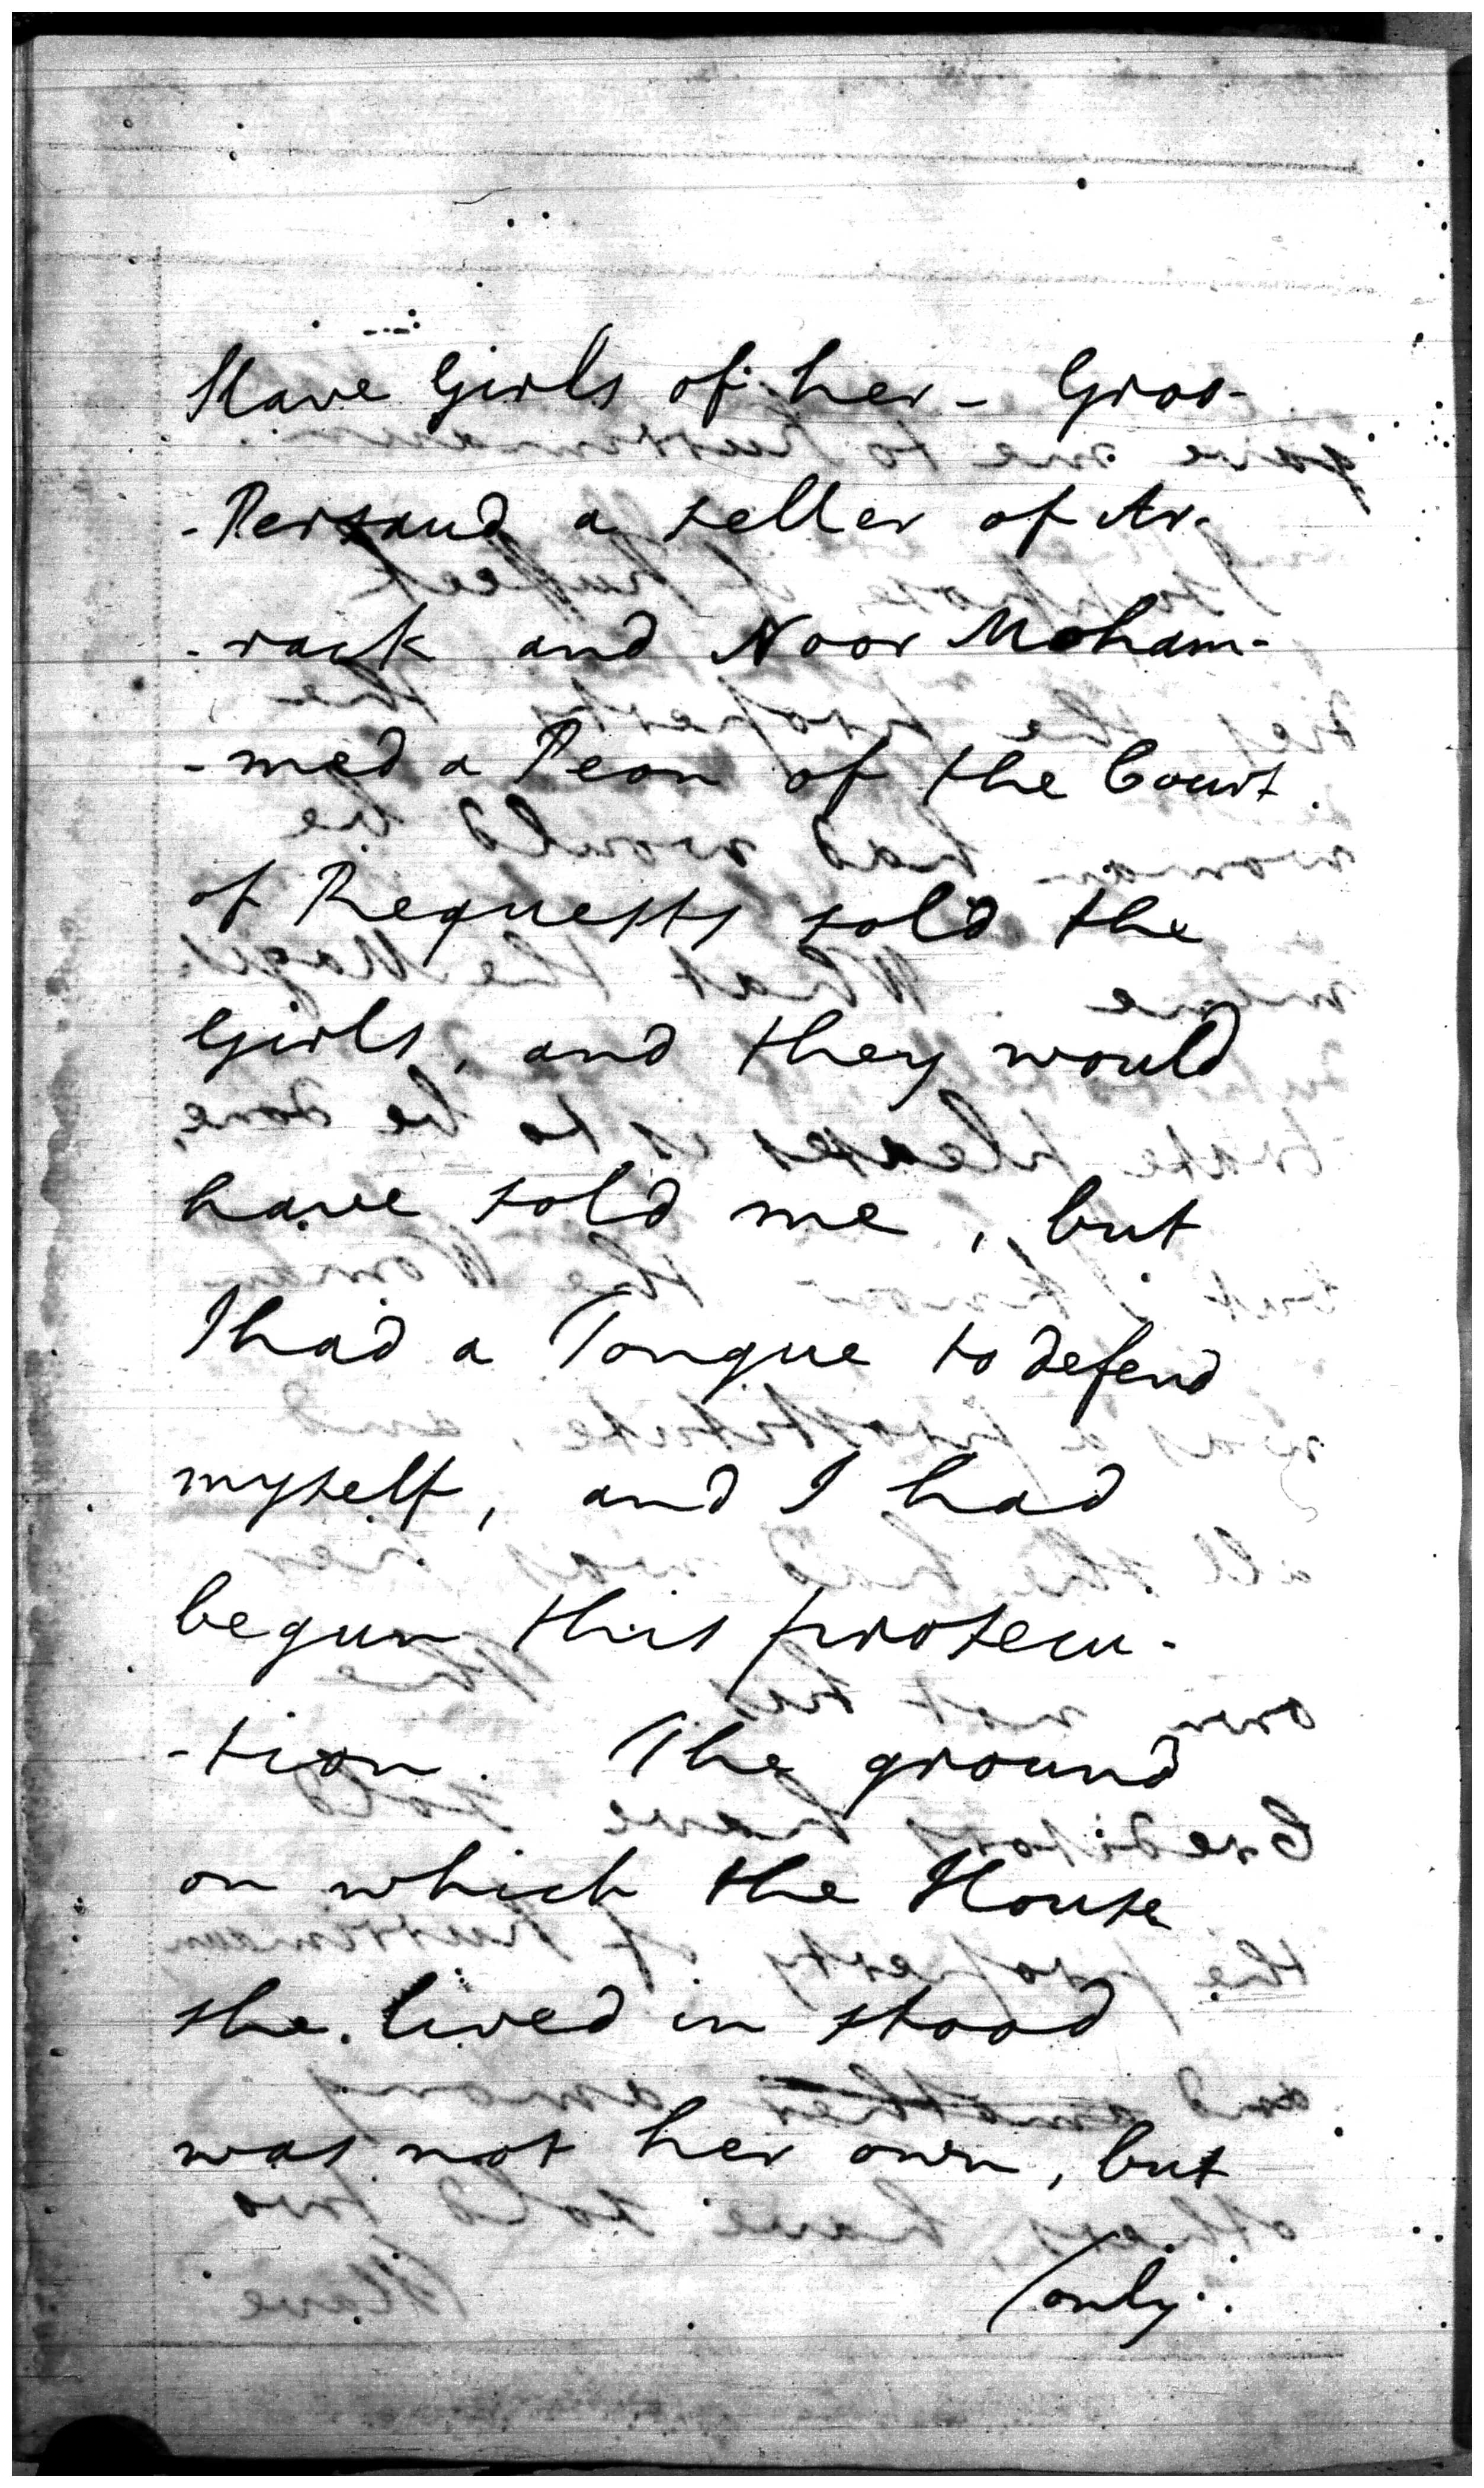 Slave Girls of her - Groo-
- Persaud a seller of Ar-
- rack and Noor Moham-
- med a Peon of the Court
of Requests sold the
Girls, and they would
have sold me, but
I had a Tongue to defend
myself, and I had
begun this prosecu-
- tion. The ground
on which the House
she lived in stood
was not her own, but
/only